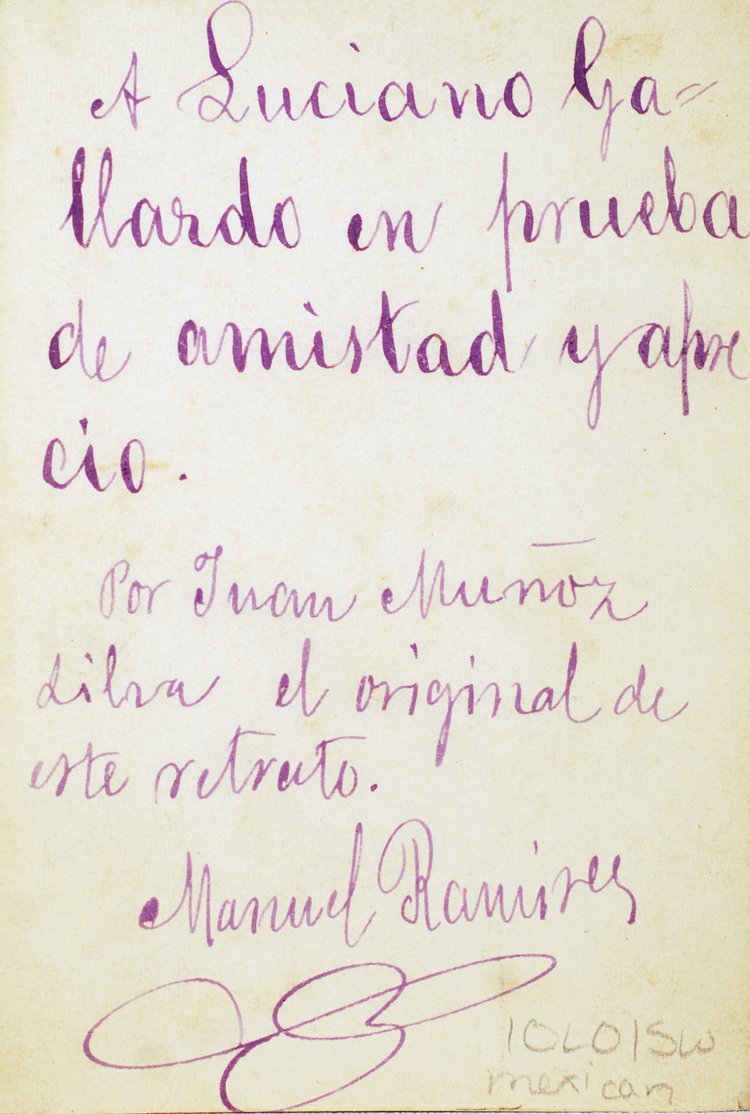 A Luciano Ga=
llardo en prueba
de amistad y apre
cio.
Por Juan Muñoz
Silva el original de
este retrato.
Manuel Ramirez
mexican